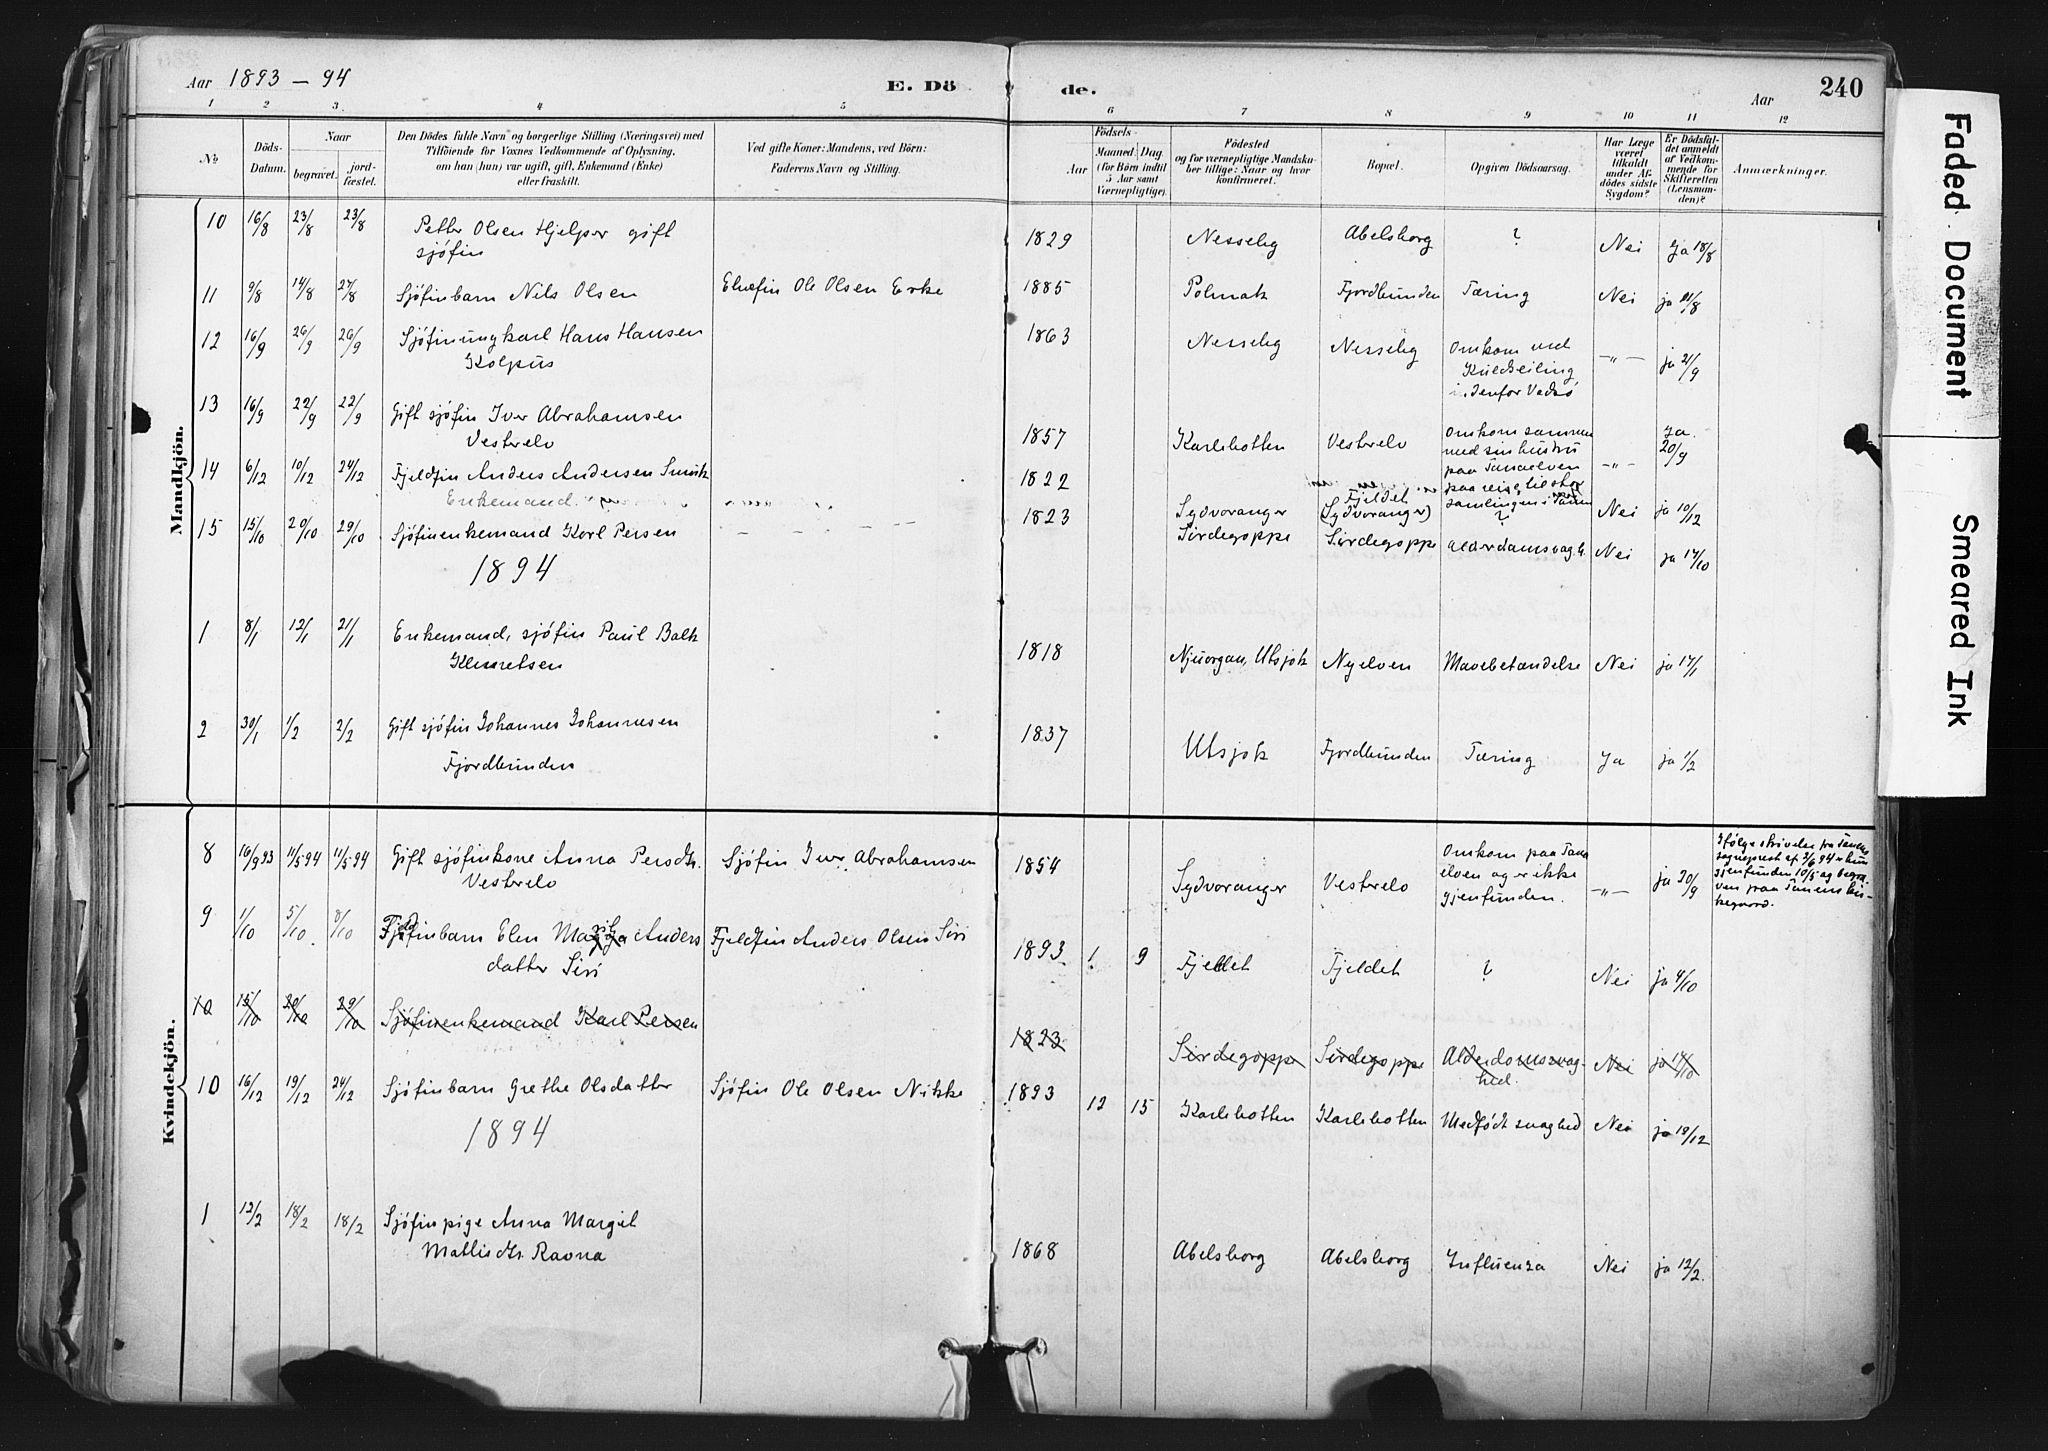 Aar 1893 – 94
E. Dö de.
Aar
240
1 2 3. 4 5 6 7 8 9 10 11 12
No
Döds-Datum.
Naar
begravet.
jordfæstet.
Den Dödes fulde Navn og borgerlige Stilling (Næringsvei) med
Tilföiende for Voxnes Vedkommende af Oplysning,
om han (hun) var ugift, gift, Enkemand (Enke)
eller fraskilt.
Ved gifte Koner: Mandens, ved Börn:
Faderens Navn og Stilling.
Födsels-
Aar
Maaned. Dag.
(for Börn indtil
5 Aar samt
Værnepligtige).
Födested
og for værnepligtige Mandsku-
ber tillige: Naar og hvor
konfirmeret.
Bopæl.
Opgiven Dödsaarsag.
Har Læge
været
tilkaldt
under Af-
dödes sidste
Sygdom?
Er Dödsfal-
det anmeldt
af Vedkom-
mende for
Skifteretten
(Lensman-
den)?
Anmærkninger.
Mandkjön.
10 16/8 23/8 23/8 Petter Olsen Hjelper gift
sjöfin
1829 Nesseby Abelsborg ? Nei Ja 18/8
11 9/8 14/8 27/8 Sjöfinbarn Nils Olsen Elvefin Ole Olsen Erke 1885 Polmak Fjordbunden Tæring Nei ja 21/8
12 16/9 26/9 26/9 Sjöfinungkarl Hans Hansen
Kolpus
1863 Nesseby Nesseby Omkom ved
Kuldseiling
idenfor Vadsö
–"– ja 21/9
13 16/9 22/9 22/9 Gift sjöfin Iver Abrahamsen
Vesterelv
1857 Karlsbotten Vesterelv Omkom sammen
med sin hustru
paa Tanaelven
paa reise til stor
samlingen i Tanen
–"– Ja. 20/9
14 6/12 10/12 24/12 Fjeldfin Anders Andersen Smuk
Enkemand.
1822 Sydvaranger Fjeldet
(Sydvaranger) ? Nei ja 10/12
15 15/10 20/10 29/10 Sjöfinenkemand Karl Persen – – 1823 Sirdegoppe Sirdegoppe Alderdomsvagh. Nei ja 17/10
1894
1 8/1 12/1 21/1 Enkemand, sjöfin Paul Balk
Klemetsen
1818 Njuorgan, Utsjok Nyelven Mavebetændelse Nei ja 17/1
2 30/1 1/2 2/2 Gift sjöfin Johannes Johannesen
Fjordbunden
1837 Utsjok Fjordbunden Tæring Ja ja 1/2
Kvindekjön.
8 16/9 93 11/5 94 11/5 94 Gift sjöfinkone Anna Persdtr.
Vesterelv
Sjöfin Iver Abrahamsen 1854 Sydvaranger Vesterelv Omkom paa Tana
elven og er ikke
gjenfunden.
–"– ja 20/9
Ifölge skrivelse fra Tanens
sogneprest af 2/6 94 er hun
gjenfunden 10/5 og begra-
ven paa Tanens kir-
kegaard.
9 1/10 5/10 8/10 Fjeldfinbarn Elen Marja Anders
datter Siri
Fjeldfin Anders Olsen Siri 1893 1 9 Fjeldet Fjeldet ? Nei ja 4/10
10 15/10 20/10 29/10 Sjöfinenkemand Karl Persen
1823 Sirdegoppe Sirdegoppe Alderdomssvag-
hed. Nei ja 17/10
10 16/12 19/12 24/12 Sjöfinbarn Grethe Olsdatter Sjöfin Ole Olsen Nikke 1893 12 15 Karlsbotten Karlsbotten Medfödt svaghed Nei ja 19/12
1894
1 12/2 18/2 18/2 Sjöfinpige Anna Margit
Mathisdtr. Ravna
1868 Abelsborg Abelsborg Influenza Nei ja 12/2.
Faded Document
Smeared Ink